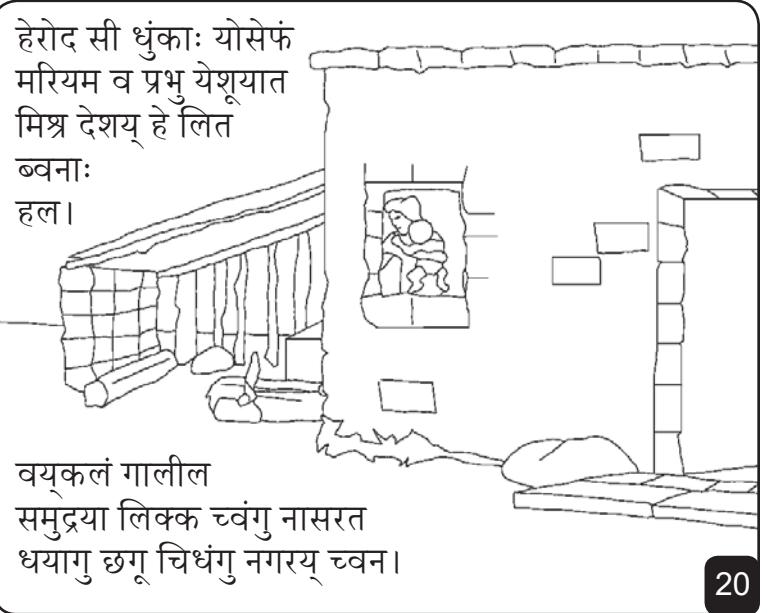 हेरोद सी धुंकाः योसेफं
मरियम व प्रभु येशूयात
मिश्र देशय् हे लित
ब्वनाः
हल।
वय्‌कलं गालील
समुद्रया लिक्क च्वंगु नासरत
धयागु छगू चिधंगु नगरय् च्वन।
20